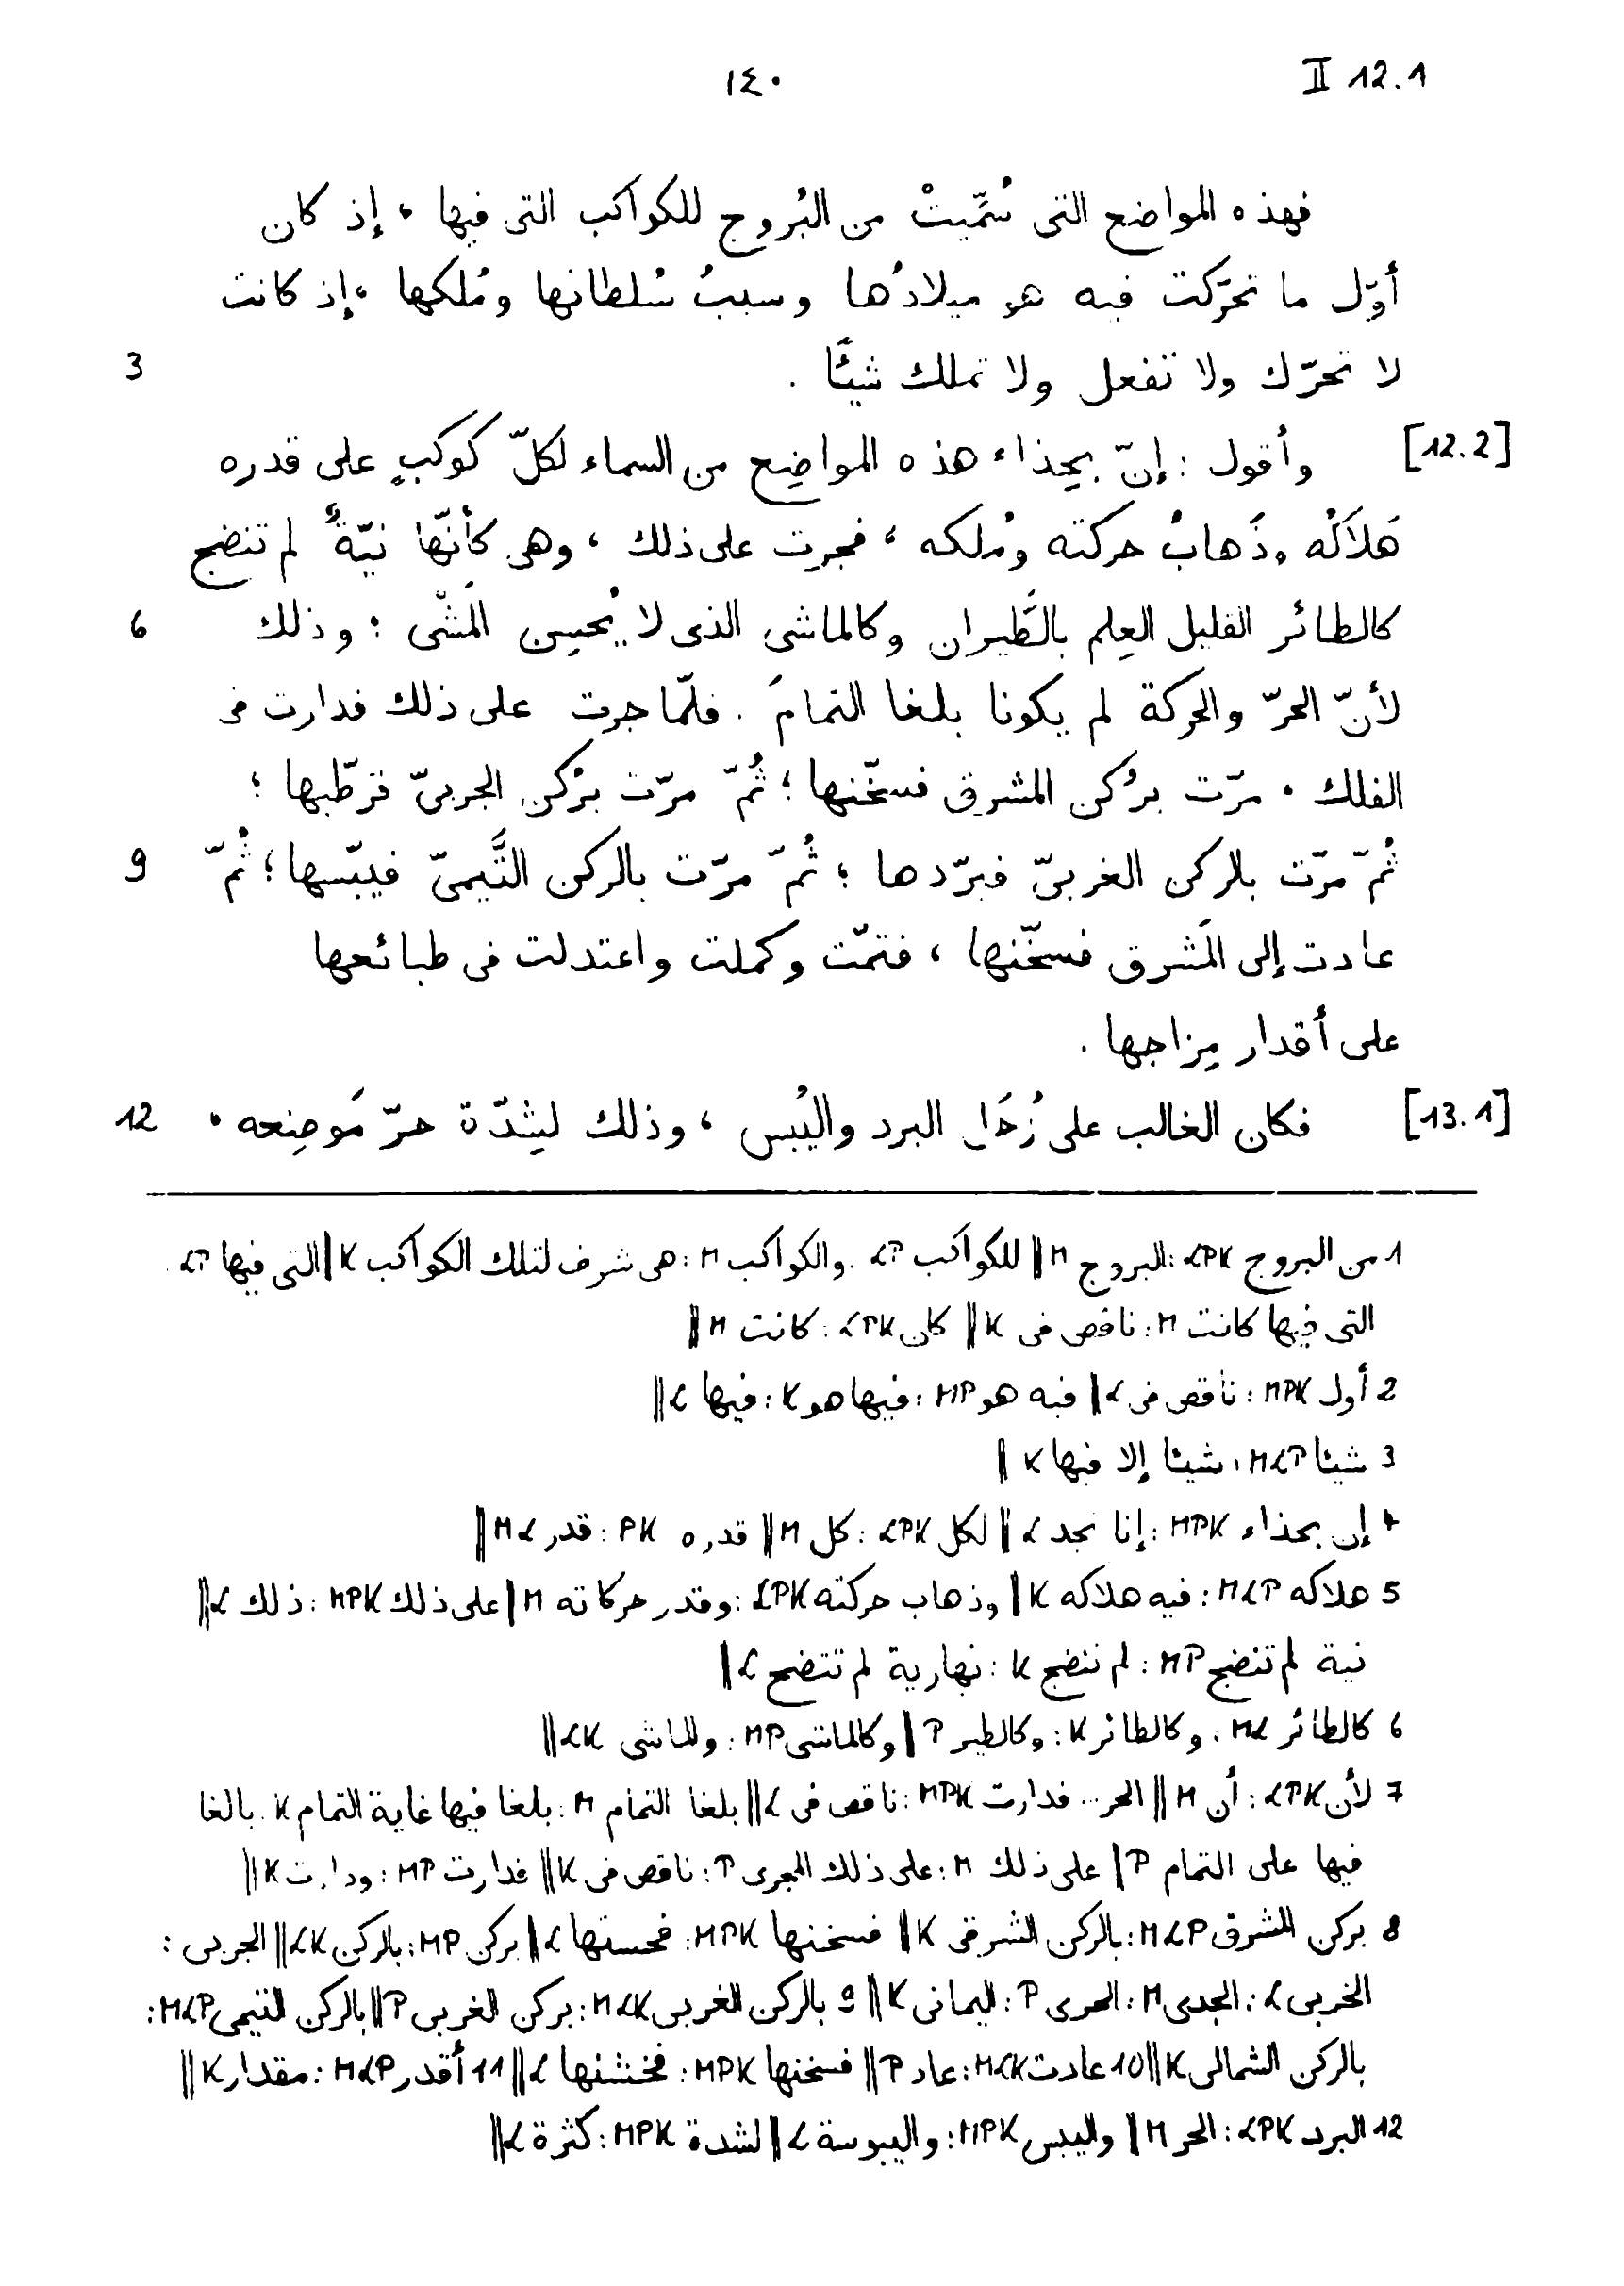 II 12.1
١٤٠
فهذه المواضع التى سُمِّيتْ من البُروج للكواكب التى فيها ، إذ كان
أوّل ما تحرّكت فيه هو ميلادُها وسببُ سُلطانها ومُلكها ، إذ كانت
لا تحرّك ولا تفعل ولا تملك شيئًا . 3
[12.2] وأقول : إنّ بحِذاء هذه المواضِع من السماء لكلّ كوكبٍ على قدره
هَلاَكُه وذَهابُ حركته ومُلكه ، فجرت على ذلك ، وهى كأنّها نيّةٌ لم تنضج
كالطائر القليل العِلم بالطَّيران وكالماشى الذى لا يُحسِن المَشْى : وذلك 6
لأنّ الحرّ والحركة لم يكونا بلغا التمامَ . فلمّا جرت على ذلك فدارت فى
الفلك ، مرّت برُكن المشرق فسخّنها ؛ ثُمّ مرّت برُكن الجربىّ فرطّبها ؛
ثُمّ مرّت بالركن الغربىّ فبرّدها ؛ ثُمّ مرّت بالركن التَّيمىّ فيبّسها ؛ ثُمّ 9
عادت إلى المَشرق فسخّنها ، فتمّت وكملت واعتدلت فى طبائعها
على أقدار مِزاجها .
[13.1] فكان الغالب على زُحَل البرد واليُبس ، وذلك لشِدّة حرّ مَوضِعه ، 12
1 من البروج LPK : البروج M || للكواكب LP . والكواكب M : هى شرف لتلك الكواكب K || التى فيها LP .
التى فيها كانت M : ناقص فى K || كان LPK : كانت M ||
2 أول MPK : ناقص فى L || فيه هو MP : فيها هو K : فيها L ||
3 شيئا MLP : شيئا إلا فيها K ||
4 إن بحذاء MPK : إنا نجد L || لكل LPK : كل M || قدره PK : قدر ML ||
5 هلاكه MLP : فيه هلاكه K || وذهاب حركته LPK : وقدر حركاته M || على ذلك MPK : ذلك L ||
نية لم تنضج MP : لم تنضج K : نهارية لم تتضح L ||
6 كالطائر ML : وكالطائر K : وكالطير P || وكالماشى MP : وللماشى LK ||
7 لأن LPK : أن M || الحر ... فدارت MPK : ناقص فى L || بلغا التمام M : بلغا فيها غاية التمام K . بالغا
فيها على التمام P || على ذلك M : على ذلك المجرى P : ناقص فى K || فدارت MP : ودارت K ||
8 بركن المشرق MLP : بالركن الشرقى K || فسخنها MPK : فحستها L || بركن MP : بالركن LK || الجربى :
الخربى L : الجدى M : الحرى P : اليمانى K || 9 بالركن الغربى MLK : بركن الغربى P || بالركن التيمى MLP :
بالركن الشمالى K || 10 عادت MLK : عاد P || فسخنها MPK : فخشنها L || 11 أقدر MLP : مقدار K ||
12 البرد LPK : الحر M || واليبس MPK : واليبوسة L || لشدة MPK : كثرة L ||